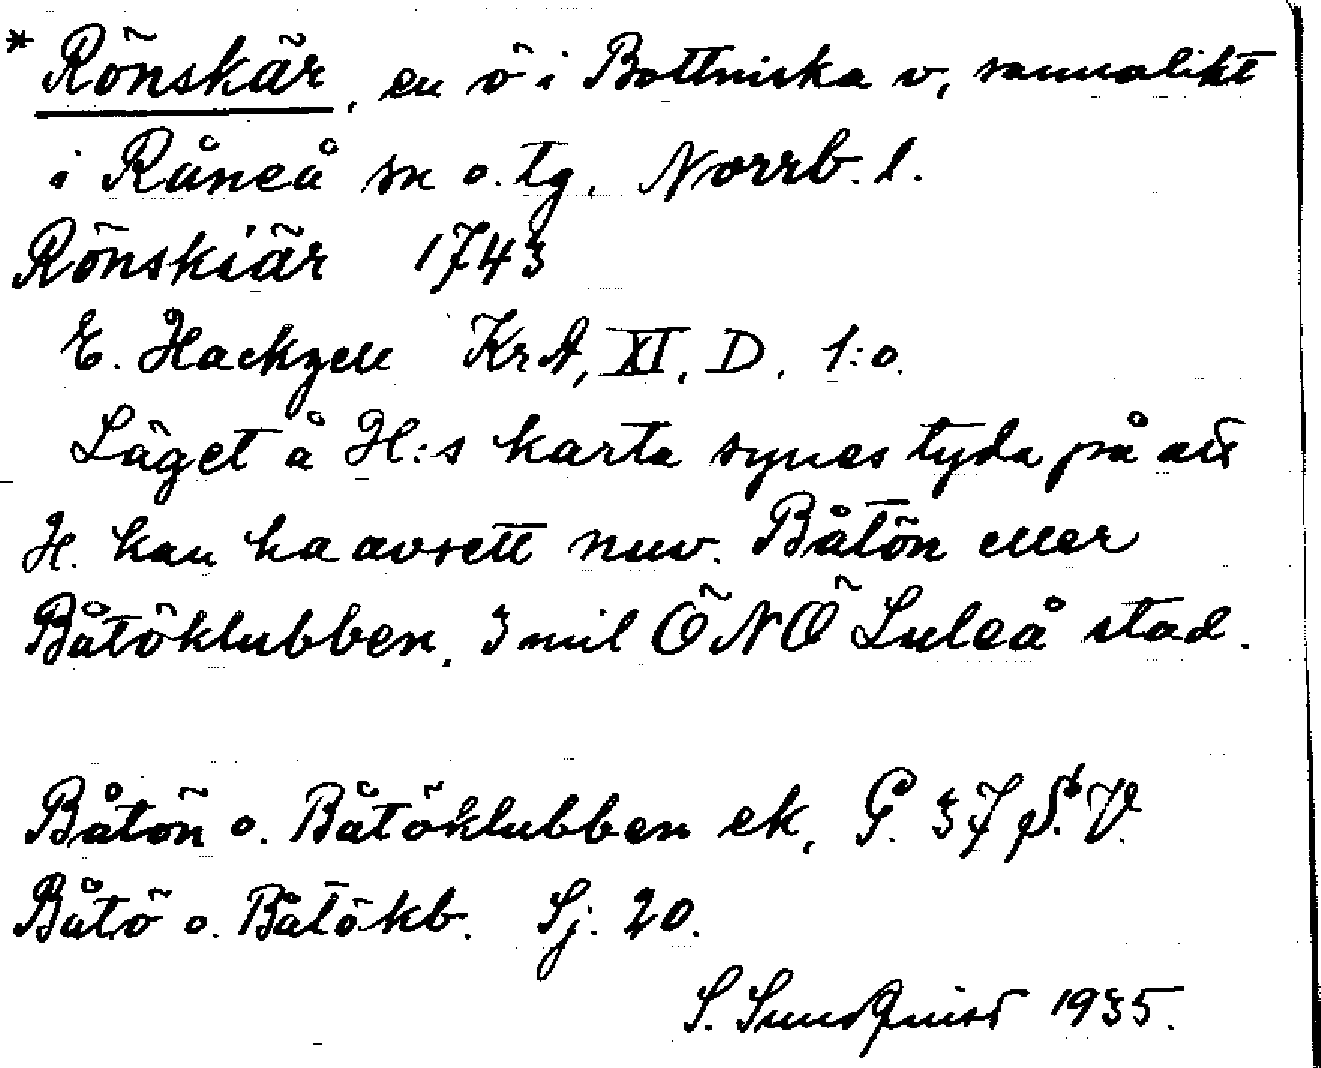 * Rönskär, en ö i Bottniska v, sannolikt
i Råneå sn o. tg. Norrb. l.
Rönskiär 1743
E. Hackzell KrA, XI. D. 1:o.
Läget å H:s karta synes tyda på att
H. kan ha avsett nuv. Båtön eller
Båtöklubben. 3 mil ÖNÖ Luleå stad.
Båtön o. Båtöklubben ek, G. 37 S.V.
Båtö o. Båtökb. Sj. 20.
S. Sundqvist 1935.